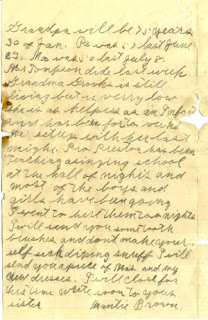 Grandpa will be 75 years
30 of Jan. Pa was 57 last June
23. Ma was 50 last July 8.
Mr Tompson dide last week.
Grandma is still
living but is very low
she is as helpless as an Infant
and has been for a week
we set up with her last
night. Pro Preston has been
Teaching a singing school
at the hall of nights and
most of the boys and
girls have ben going
I went to hear them two nights
I will send you some tooth
brushes and dont make your
self sick diping snuff I will
send you a piece of Mas and my
new dresses. I will close for
this time write soon to your
sister Brown